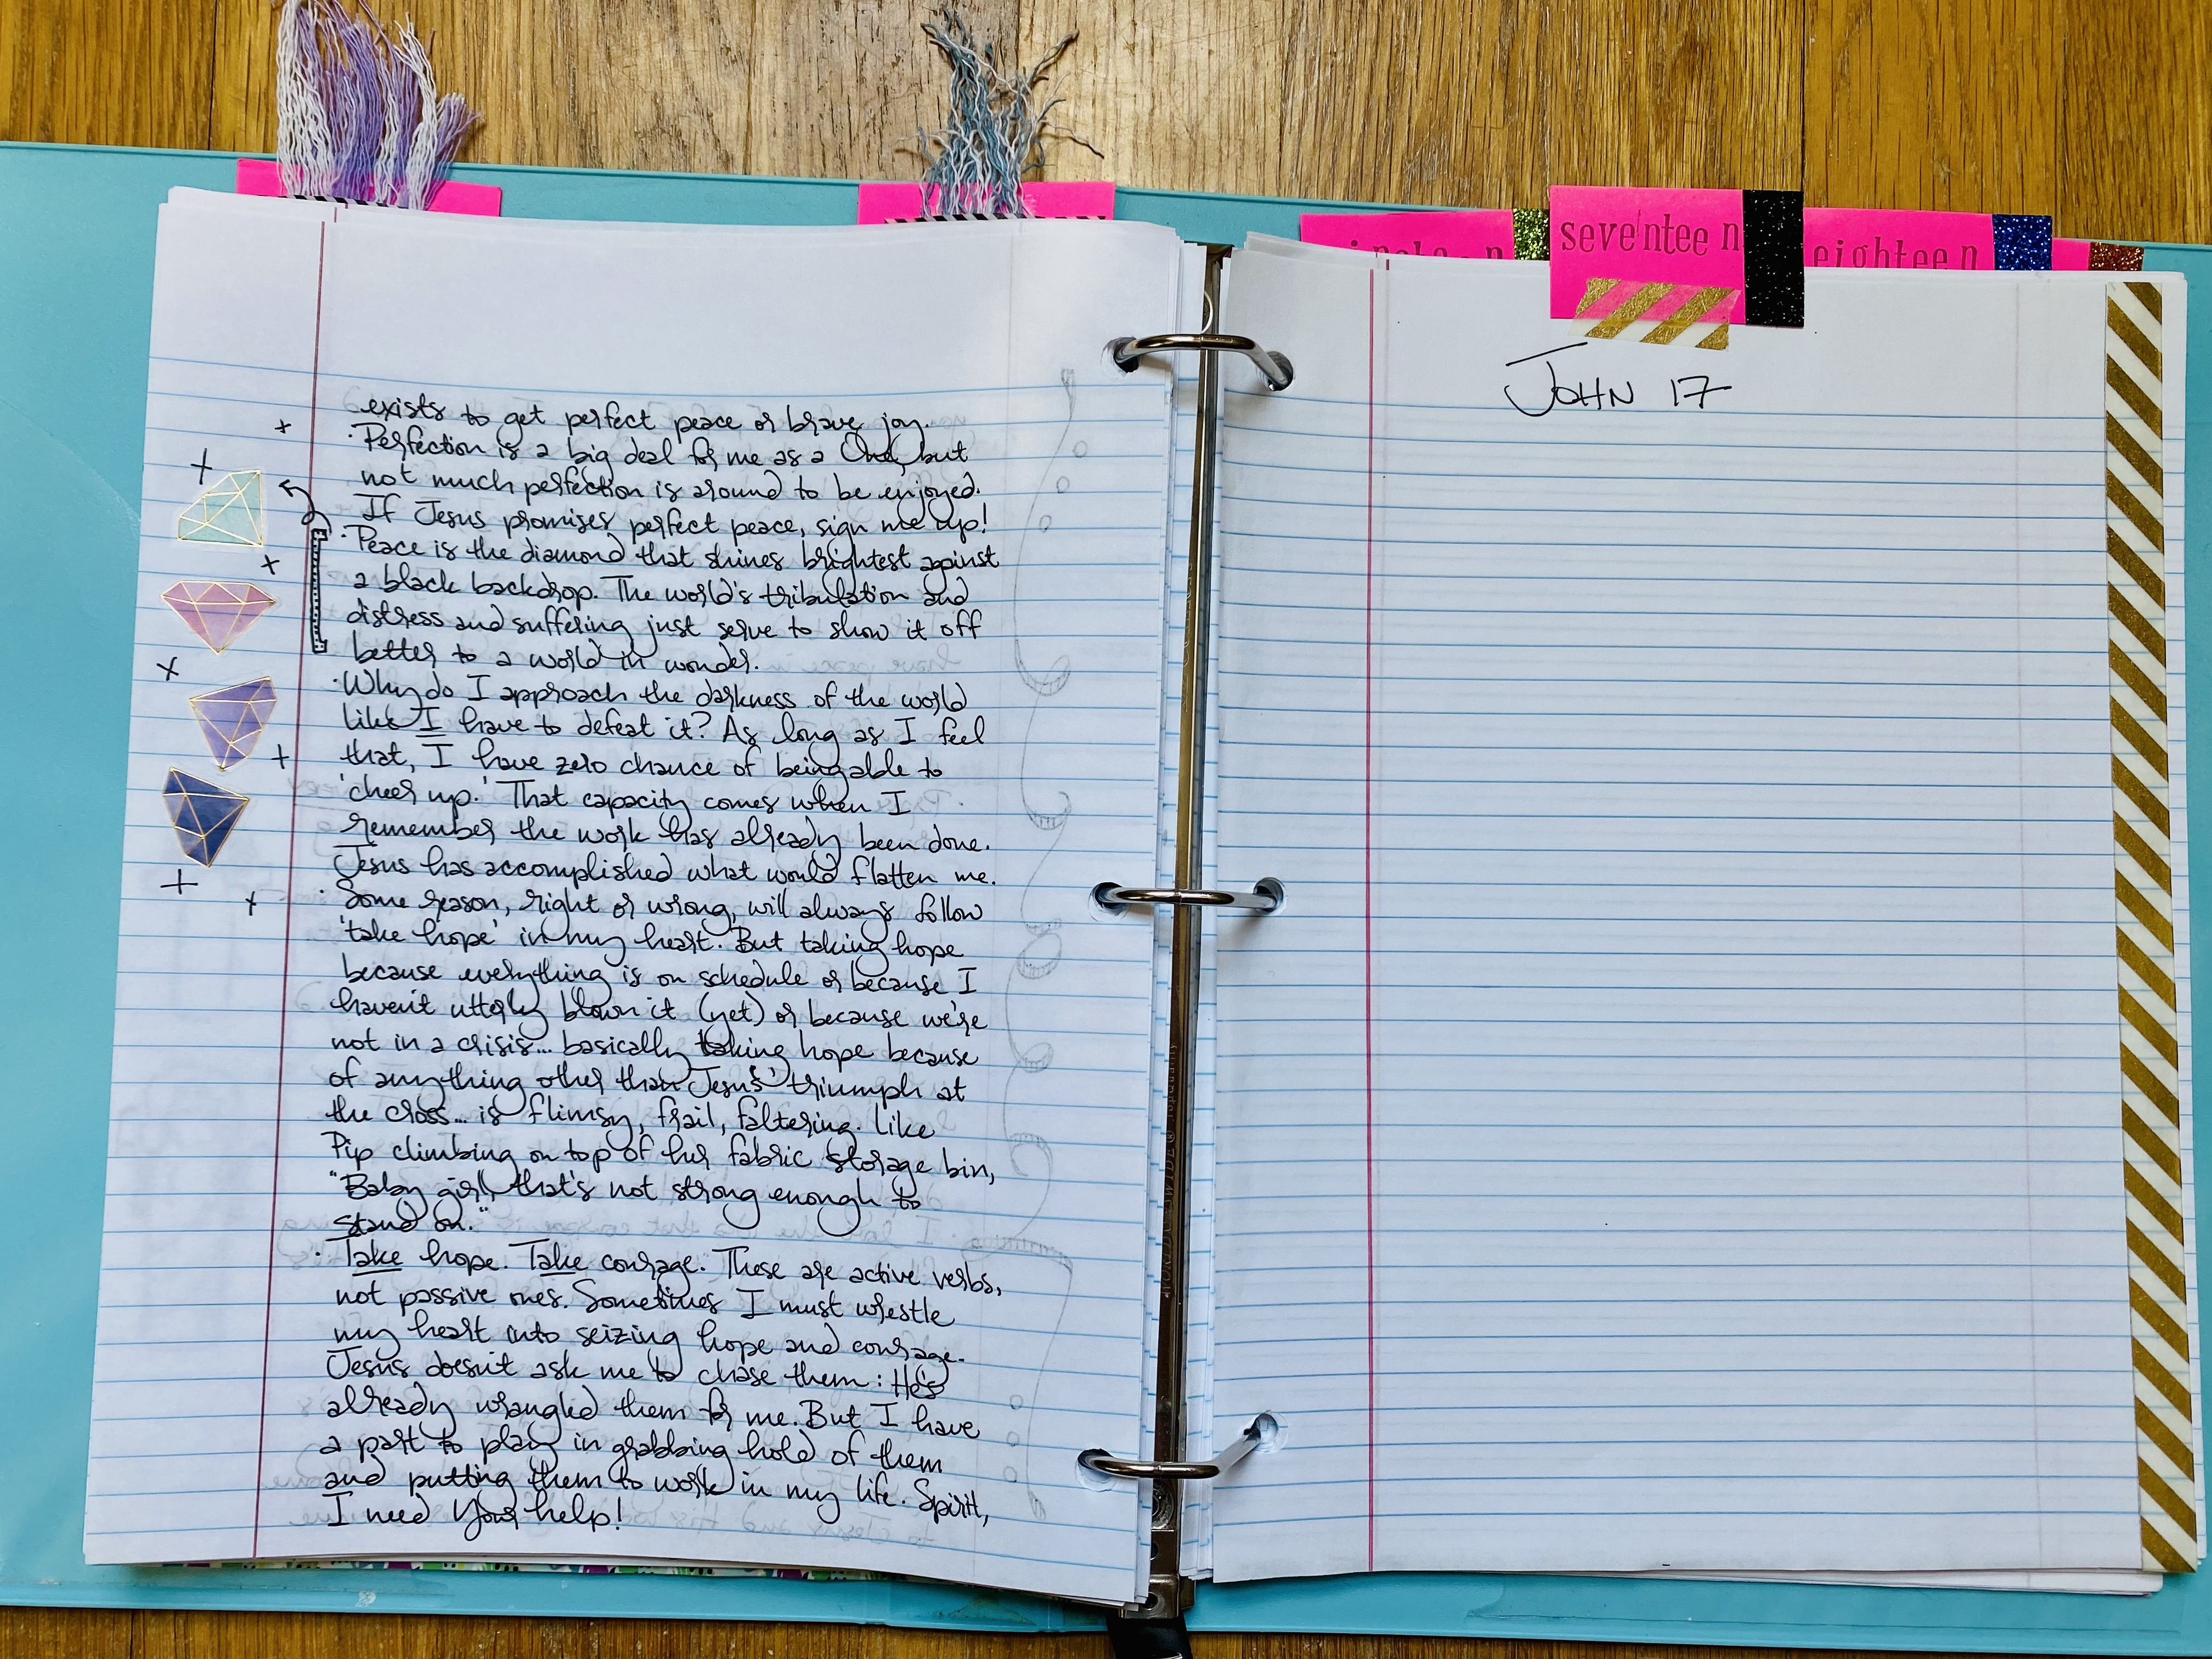 exists to get perfect peace or brave joy.
· Perfection is a big deal for me as a One, but
not much perfection is around to be enjoyed.
If Jesus promises perfect peace, sign me up!
· Peace is the diamond that shines brightest against
a black backdrop. The world's tribulation and
distress and suffering just serve to show it off
better to a world in wonder.
· Why do I approach the darkness of the world
like I have to defeat it? As long as I feel
that, I have zero chance of being able to
'cheer up.' That capacity comes when I
remember the work has already been done.
Jesus has accomplished what would flatten me.
· Some reason, right or wrong, will always follow
'take hope' in my heart. But taking hope
because everything is on schedule or because I
haven't utterly blown it (yet) or because we're
not in a crisis... basically taking hope because
of anything other than Jesus' triumph at
the cross... is flimsy, frail, faltering. Like
Pip climbing on top of her fabric storage bin,
"Baby girl, that's not strong enough to
stand on."
· Take hope. Take courage. These are active verbs,
not passive ones. Sometimes I must wrestle
my heart into seizing hope and courage.
Jesus doesn't ask me to chase them: He's
already wrangled them for me. But I have
a part to play in grabbing hold of them
and putting them to work in my life. Spirit,
I need Your help!
seventeen
eighteen
JOHN 17